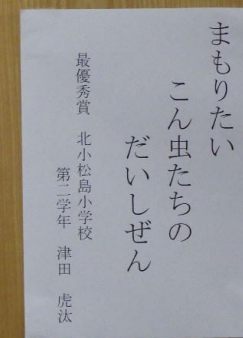 まもりたい
こん虫たちの
だいしぜん
最優秀賞　北小松島小学校
第二学年　津田　虎汰